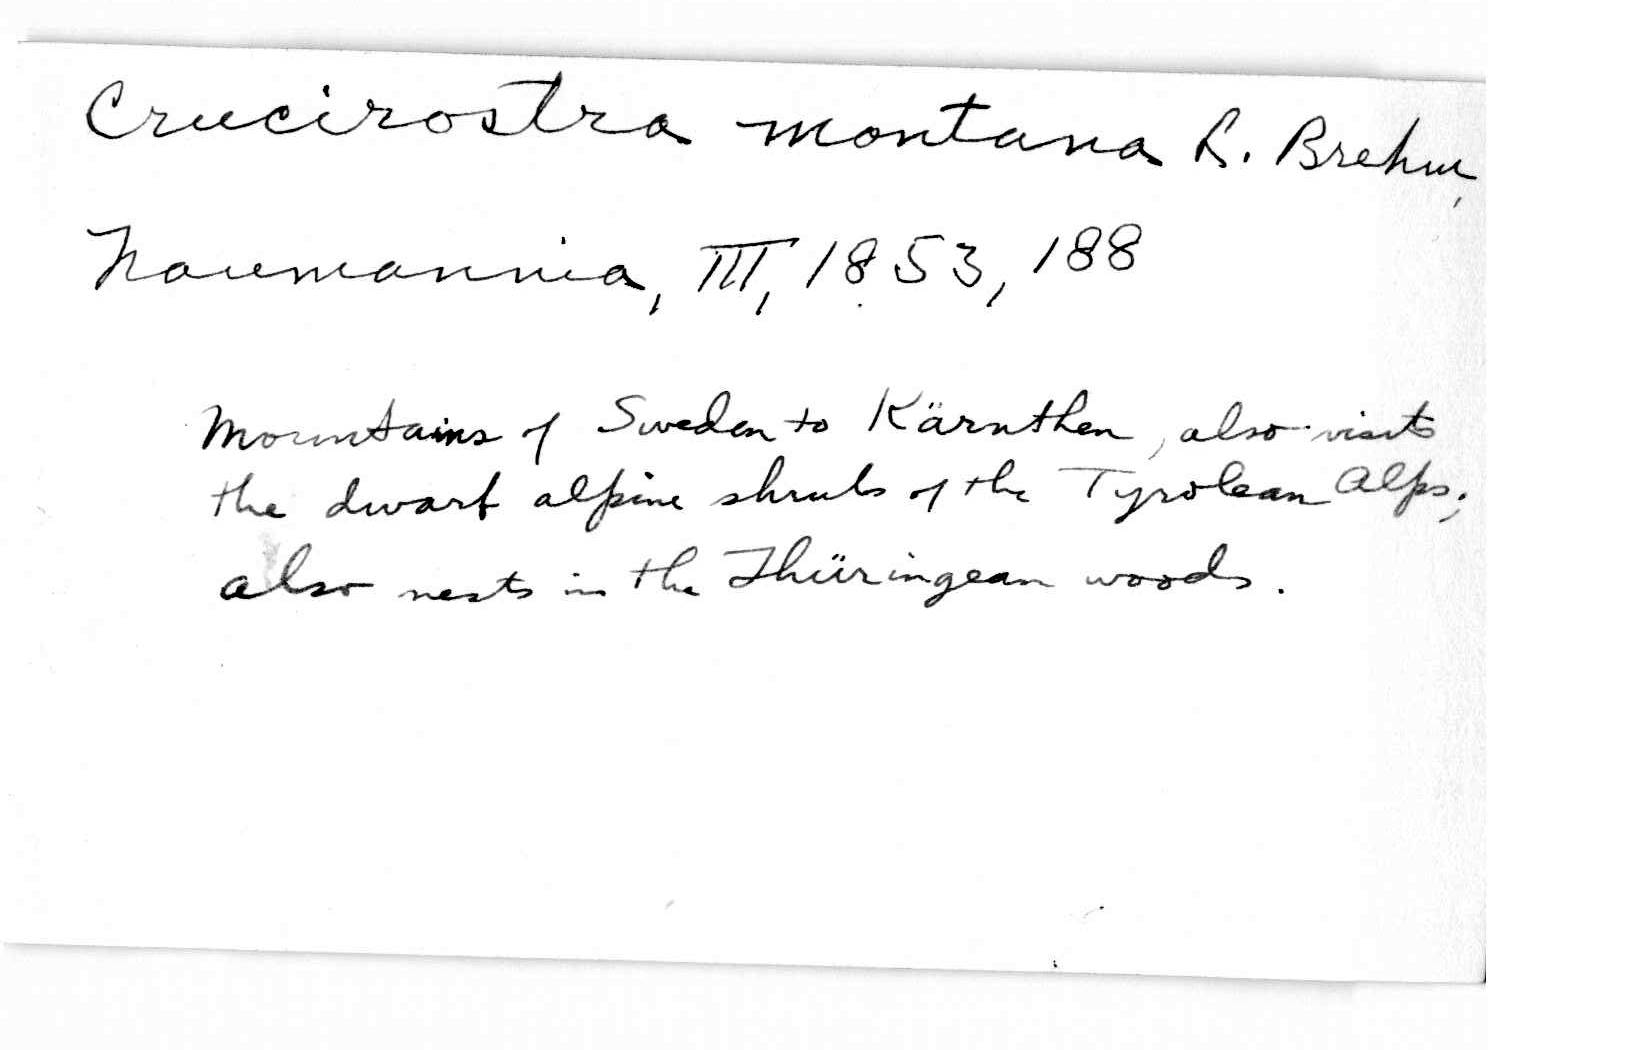 Crucirostra montana L. Brehm,
Naumannia, III, 1853, 188
Mountains of Sweden to Kärnthen, also visits
the dwarf alpine shrubs of the Tyrolean Alps;
also nests in the Thüringean woods.